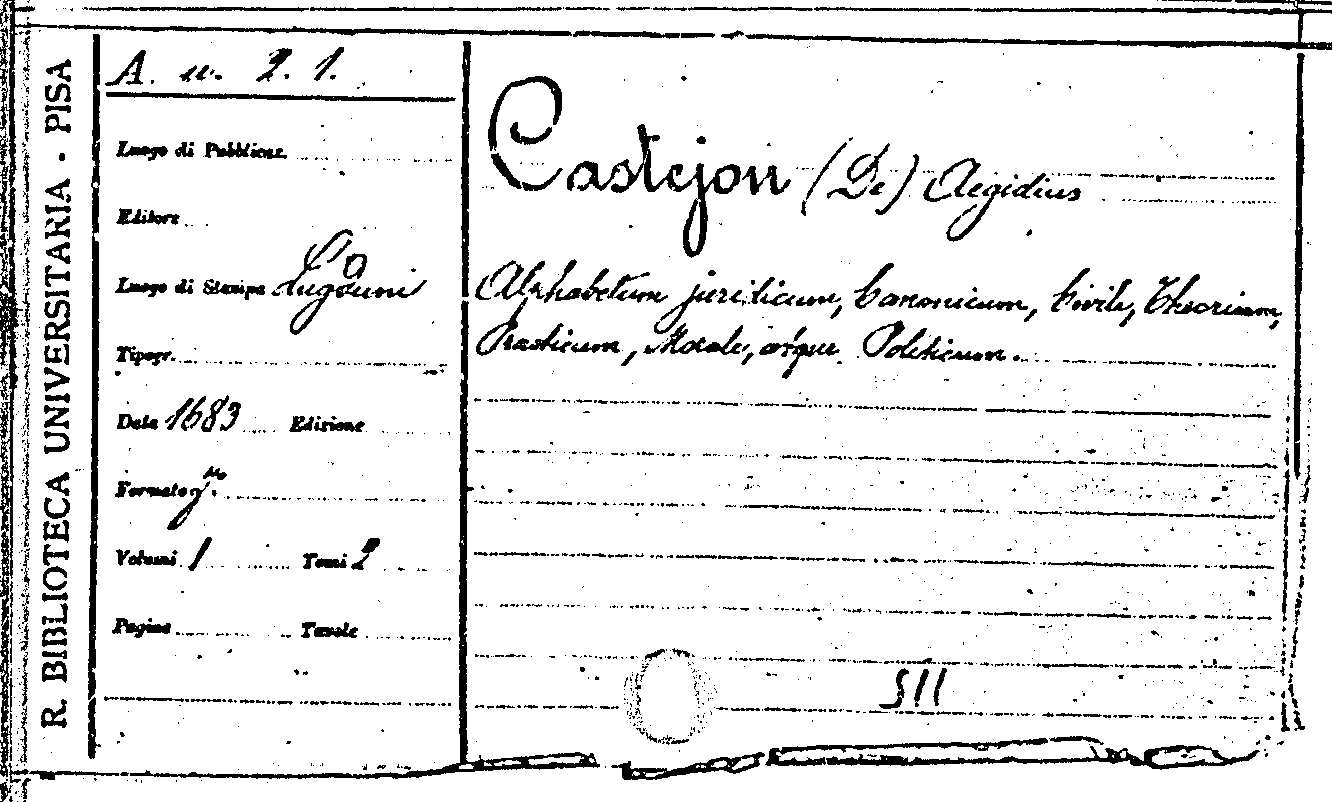 R. BIBLIOTECA UNIVERSITARIA - PISA
A. u. 2. 1.
Luogo di Pubblicaz.
Editore
Luogo di Stampa Lugduni
Tipogr.
Data 1683 Edizione
Formato f.°
Volumi 1 Tomi 2
Pagine Tavole
Castejon (De) Aegidius
Alphabetum juridicum, Canonicum, Civile, Theoricum,
Practicum, Morale, atque Politicum.